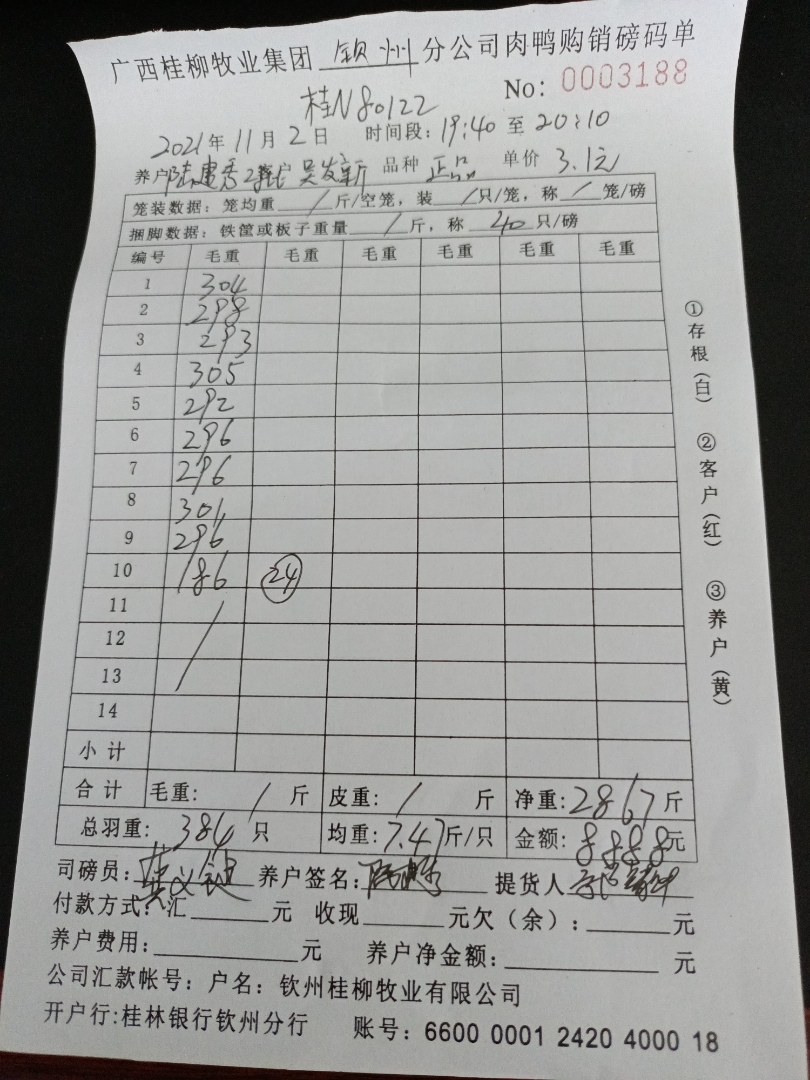 广西桂柳牧业集团 钦州 分公司肉鸭购销磅码单
No: 0003188
桂N80122
2021年11月2日 时间段: 19:40 至 20:10
养户 陆建秀 吴发新 品种 正品 单价 3.1元
笼装数据: 笼均重 / 斤/空笼, 装 / 只/笼, 称 / 笼/磅
捆脚数据: 铁筐或板子重量 / 斤, 称 40 只/磅
编号 毛重 毛重 毛重 毛重 毛重 毛重
1 304
2 298
3 293
4 305
5 292
6 296
7 296
8 301
9 296
10 186 24
11
12
13
14
小计
合计 毛重: / 斤 皮重: / 斤 净重: 2867 斤
总羽重: 384 只 均重: 7.47 斤/只 金额: 8888元
司磅员: 养户签名: 提货人
付款方式: 汇 元 收现 元欠（余）: 元
养户费用: 元 养户净金额: 元
公司汇款帐号: 户名: 钦州桂柳牧业有限公司
开户行:桂林银行钦州分行 账号: 6600 0001 2420 4000 18
①存根（白） ②客户（红） ③养户（黄）